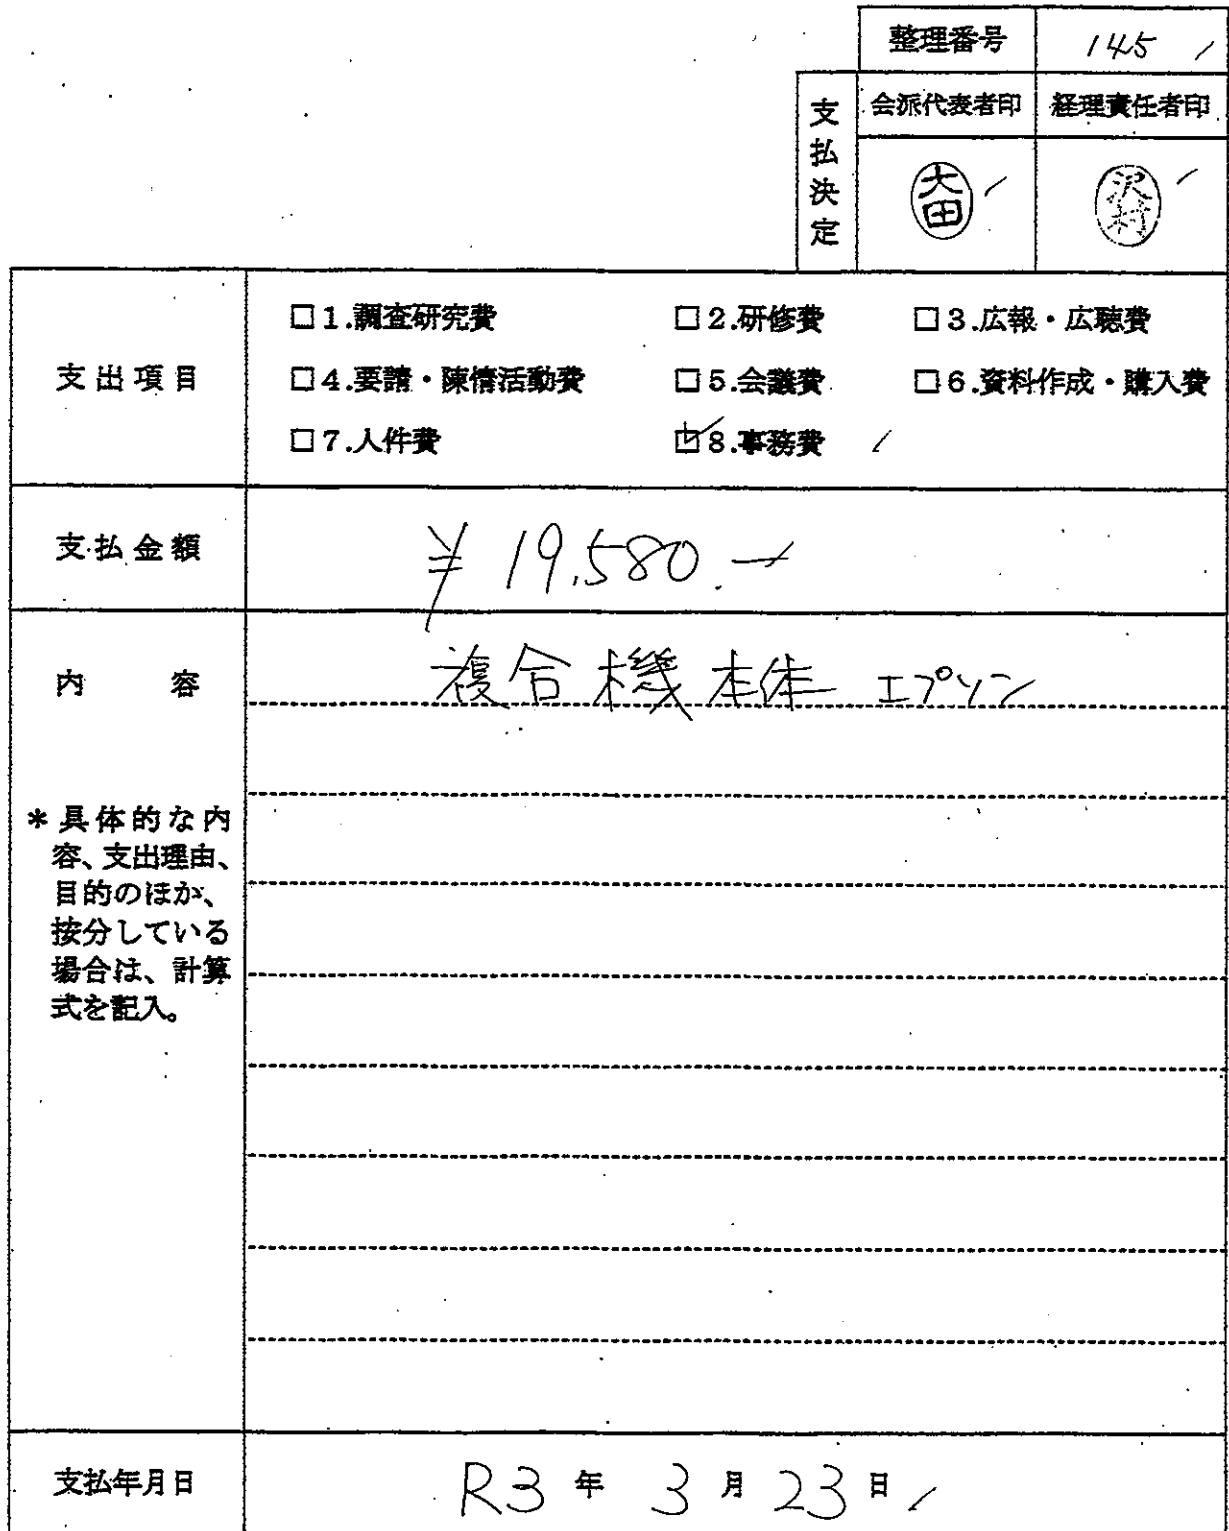 整理番号 145
支払決定 会派代表者印 経理責任者印
大田 沢村
支出項目
□1.調査研究費 □2.研修費 □3.広報・広聴費
□4.要請・陳情活動費 □5.会議費 □6.資料作成・購入費
□7.人件費 ☑8.事務費
支払金額 ¥19,580.-
内容 複合機本体 エプソン
*具体的な内
容、支出理由、
目的のほか、
按分している
場合は、計算
式を記入。
支払年月日 R3年3月23日